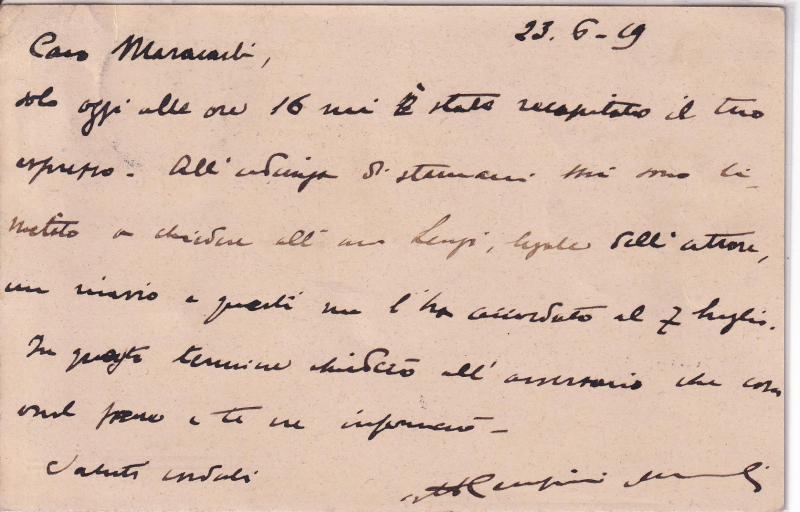 23.6-19
Caro
solo oggi alle ore 16 mi è stato recapitato il tuo
espresso - All'udienza di stamani mi sono li-
mitato a chiedere all'avv. legale dell'attore,
un rinvio e questi me l'ha accordato al 7 luglio.
In questo termine chiederò all'avversario che cosa
vuol fare e te ne informerò -
Saluti cordiali